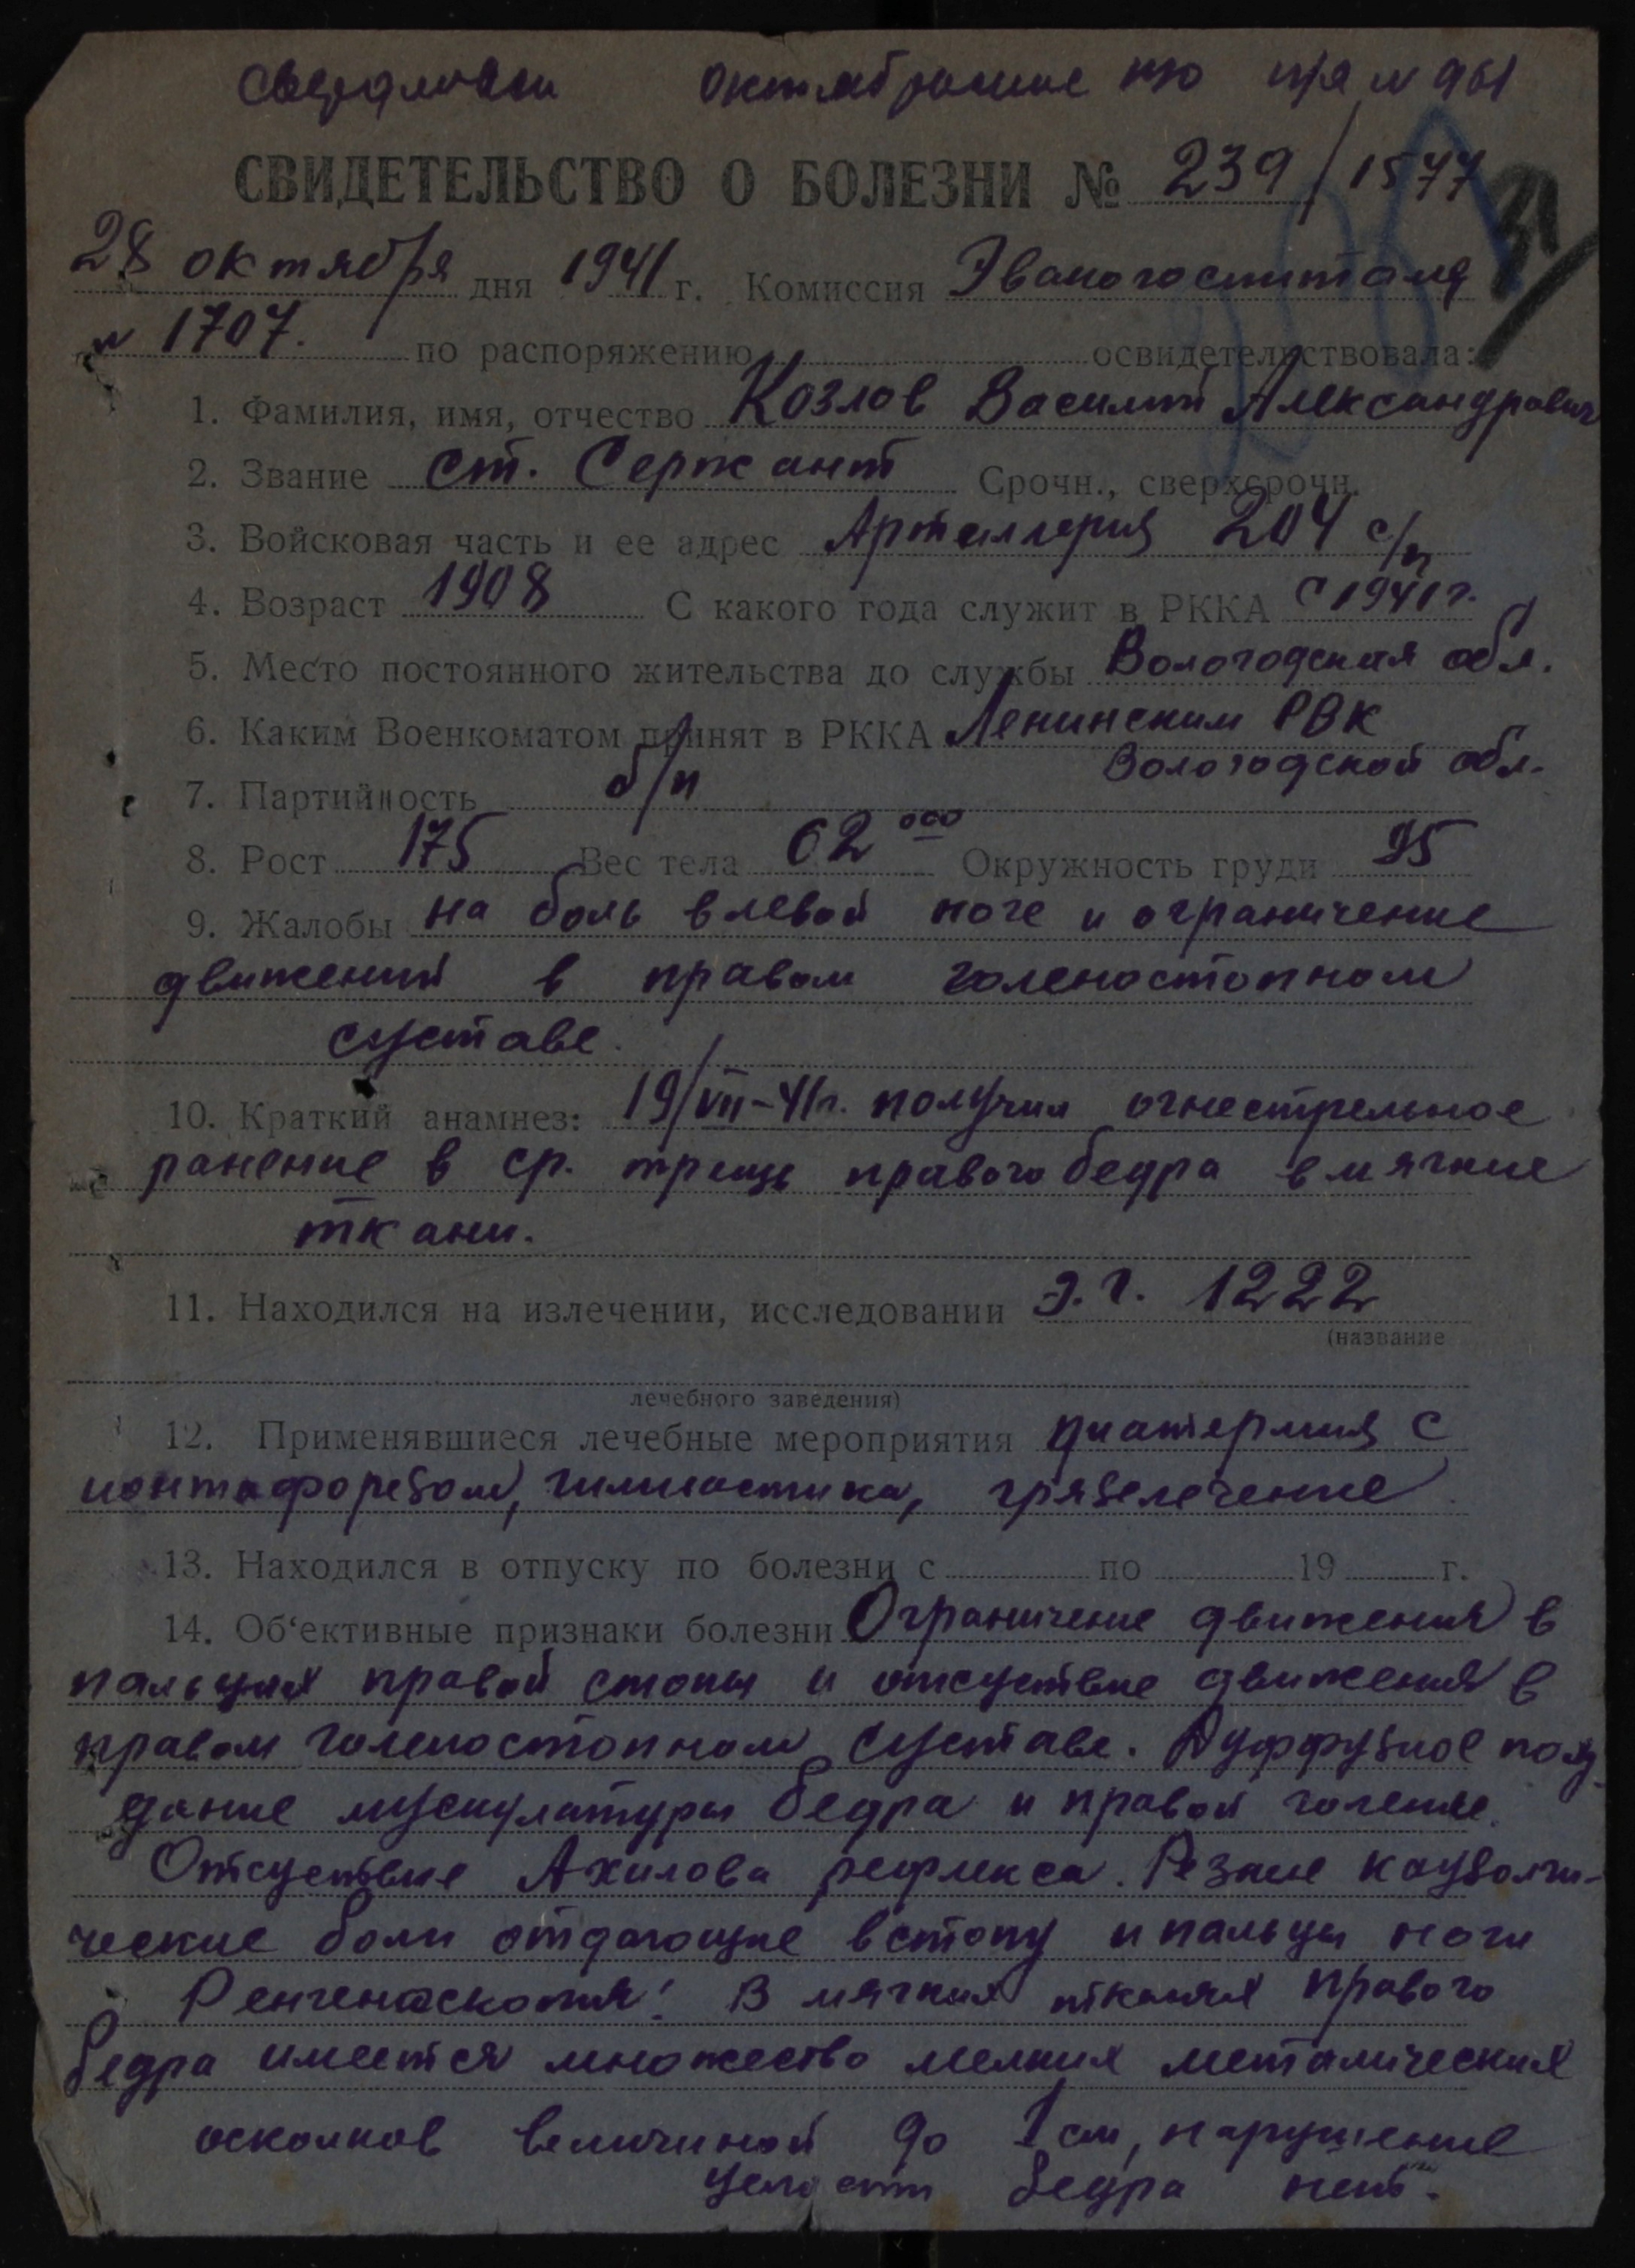 Свердловск Октябрьское п/я № 961
СВИДЕТЕЛЬСТВО О БОЛЕЗНИ № 239/1577
28 октября дня 1941 г. Комиссия Эвакогоспиталя
№ 1707. по распоряжению освидетельствовала:
1. Фамилия, имя, отчество Козлов Василий Александрович
2. Звание ст. Сержант Срочн., сверхсрочн.
3. Войсковая часть и ее адрес Артиллерия 204 с/п
4. Возраст 1908 С какого года служит в РККА с 1941 г.
5. Место постоянного жительства до службы Вологодская обл.
6. Каким Военкоматом принят в РККА Ленинским РВК
Вологодской обл.
7. Партийность б/п
8. Рост 175 Вес тела 62 000 Окружность груди 95
9. Жалобы на боль в левой ноге и ограничение
движений в правом голеностопном
суставе.
10. Краткий анамнез: 19/VII-41г. получил огнестрельное
ранение в ср. трещь правого бедра в мягкие
ткани.
11. Находился на излечении, исследовании э.г. 1222
(название
лечебного заведения)
12. Применявшиеся лечебные мероприятия диатермия с
ионтофорезом, гимнастика, грязелечение
13. Находился в отпуску по болезни с по 19 г.
14. Об‘ективные признаки болезни Ограничение движения в
пальцах правой стопы и отсуствие движения в
правом голеностопном суставе. Дуффузное поху
дание мускулатуры бедра и правой голени.
Отсуствие Ахилова рефлекса. Резкие каузалги-
ческие боли отдающие в стопу и пальцы ноги
Ренгеноскопия: В мягких тканях правого
бедра имеется множество мелких металических
осколков величиной до 1 см, нарушение
целости бедра нет.